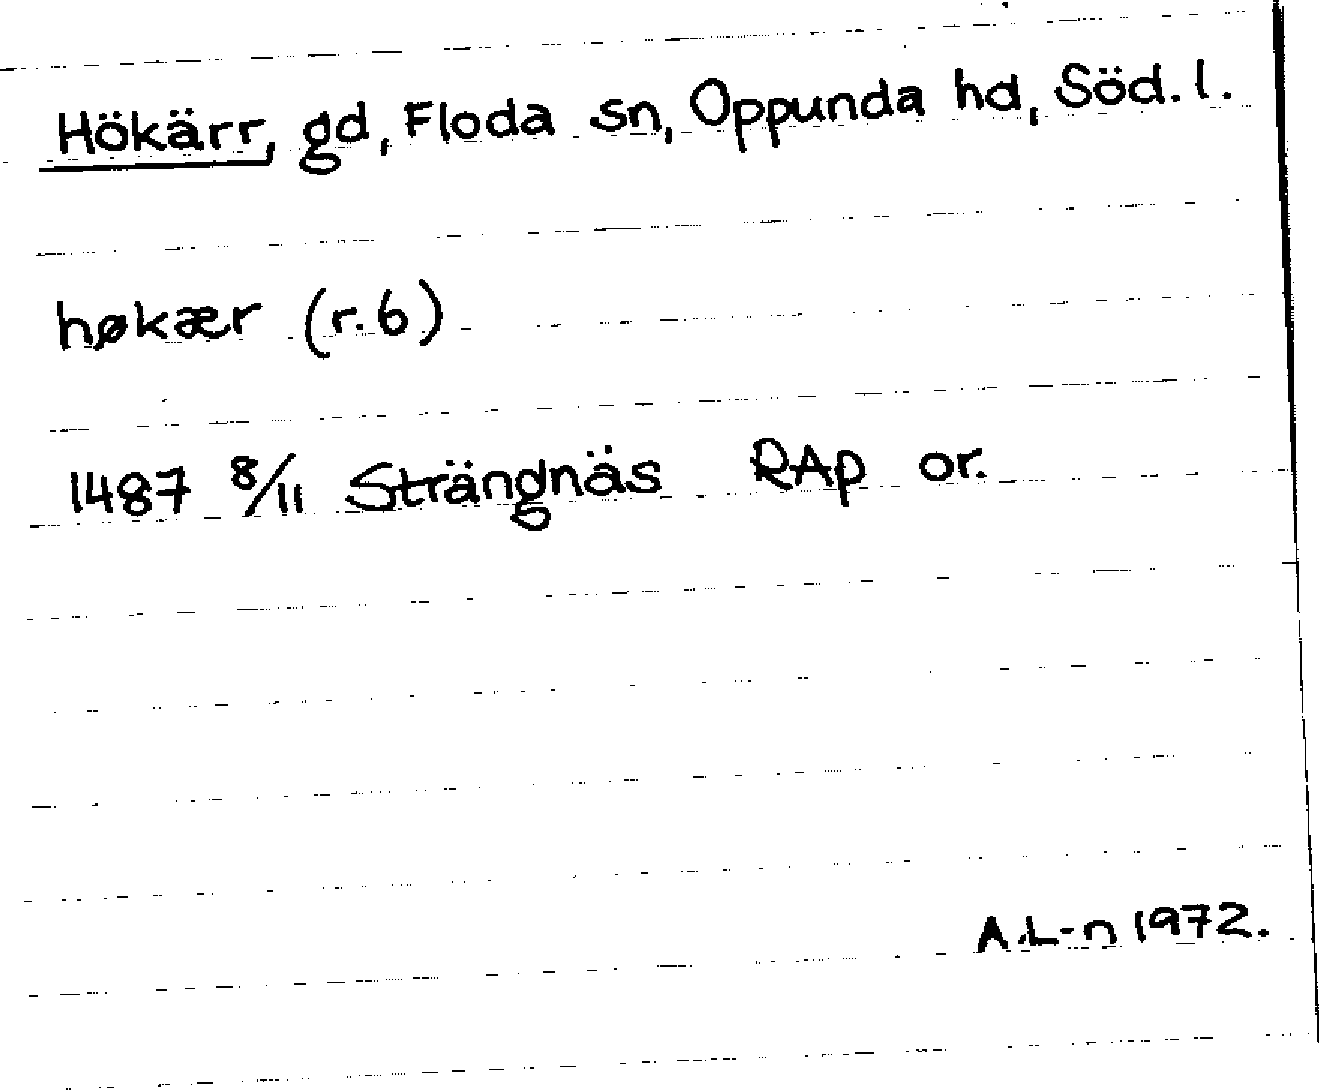 Hökärr, gd, Floda sn, Oppunda hd, Söd. l.
høkær (r. 6)
1487 8/11 Strängnäs RAp or.
A.L-n 1972.